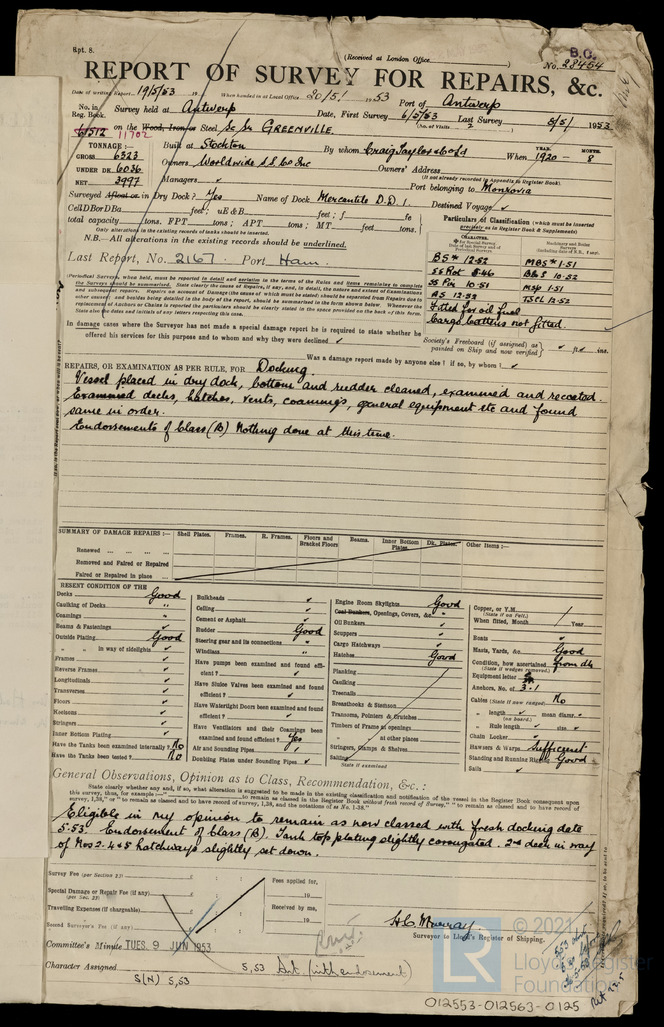 Rpt. 8.
(Received at London Office
B.O.
No. 28454
REPORT OF SURVEY FOR REPAIRS, &c.
Date of writing Report 19/5/53 19 When handed in at Local Office 20/5/ 1953 Port of Antwerp
No. in Reg. Book. Survey held at Antwerp Date, First Survey 6/5/53 Last Survey 8/5/ 1953
(No. of Visits 2 )
61512 11702 on the Wood, Iron or Steel Sc Sr GREENVILLE
TONNAGE:—
GROSS 6323
UNDER DK. 6036
NET 3997
Built at Stockton By whom Craig Taylor & Co Ld When 1920 - 8
YEAR. MONTH.
Owners Worldwide S.S. Co Inc Owners' Address
(If not already recorded in Appendix to Register Book).
Managers ✓ Port belonging to Monrovia
Surveyed Afloat or in Dry Dock? Yes Name of Dock Mercantile D.D.1. Destined Voyage ✓
CellDBorDBa feet; uE&B feet; f fe
total capacity tons. FPT tons; APT tons; MT feet tons.
Only alterations in the existing records of tanks should be inserted.
N.B.—All alterations in the existing records should be underlined.
Last Report, No. 2167. Port Ham.
Particulars of Classification (which must be inserted precisely as in Register Book & Supplements)
CHARACTER.
BS* 12-52
MBS* 1-51
SS Rot 8-46
B&S 10-52
SS Pir 10-51
MSp 1-51
AS 12-52
TSCL 12-52
Fitted for oil fuel
Cargo battens not fitted.
In damage cases where the Surveyor has not made a special damage report he is required to state whether he offered his services for this purpose and to whom and why they were declined ✓
Society's Freeboard (if assigned) as painted on Ship and now verified ✓ ft ✓ ins.
Was a damage report made by anyone else? if so, by whom? ✓
REPAIRS, OR EXAMINATION AS PER RULE, FOR Docking.
Vessel placed in dry dock, bottom and rudder cleaned, examined and recoated.
Examined decks, hatches, vents, coamings, general equipment etc and found
same in order.
Endorsements of Class (B) Nothing done at this time.
SUMMARY OF DAMAGE REPAIRS:—
Shell Plates. Frames. R. Frames. Floors and Bracket Floors Beams. Inner Bottom Plates. Dk. Plates. Other Items:—
Renewed ... ... ... ...
Removed and Faired or Repaired
Faired or Repaired in place ...
RESENT CONDITION OF THE
Decks Good
Caulking of Decks "
Coamings "
Beams & Fastenings ✓
Outside Plating Good
" " in way of sidelights ✓
Frames ✓
Reverse Frames ✓
Longitudinals ✓
Transverses ✓
Floors ✓
Keelsons ✓
Stringers ✓
Inner Bottom Plating ✓
Have the Tanks been examined internally? No
Have the Tanks been tested? No
Bulkheads ✓
Ceiling ✓
Cement or Asphalt ✓
Rudder Good
Steering gear and its connections "
Windlass "
Have pumps been examined and found efficient? ✓
Have Sluice Valves been examined and found efficient? ✓
Have Watertight Doors been examined and found efficient? ✓
Have Ventilators and their Coamings been examined and found efficient? Yes
Air and Sounding Pipes ✓
Doubling Plates under Sounding Pipes ✓
Engine Room Skylights Good
Coal Bunkers, Openings, Covers, &c. "
Oil Bunkers ✓
Scuppers ✓
Cargo Hatchways ✓
Hatches Good
Planking
Caulking
Treenails
Breasthooks & Stemson
Transoms, Pointers & Crutches
Timbers of Frame at openings
" " at other places
Stringers, Clamps & Shelves
Salting
(State if examined
Copper, or Y.M.
(State if on Felt.)
When fitted, Month Year
Boats "
Masts, Yards, &c. Good
Condition, how ascertained from dk
(State if wedges removed)
Equipment letter
Anchors, No. of 3.1
Cables (State if now ranged) No
" length ✓ mean diamr. ✓
(on board)
" Rule length ✓ size ✓
Chain Locker ✓
Hawsers & Warps Sufficient
Standing and Running Rigging Good
Sails ✓
General Observations, Opinion as to Class, Recommendation, &c. :
State clearly whether any and, if so, what alteration is suggested to be made in the existing classification and notification of the vessel in the Register Book consequent upon this survey, thus, for example:—
Eligible in my opinion to remain as now classed with fresh docking date
5.53. Endorsement of Class (B). Tank top plating slightly corrugated. 2nd deck in way
of Nos 2. 4 & 5 hatchways slightly set down.
Survey Fee (per Section 23)
Special Damage or Repair Fee (if any)
(per Sec. 23)
Travelling Expenses (if chargeable)
Second Surveyor's Fee (if any)
Fees applied for,
19
Received by me,
19
H.C. Murray
Surveyor to Lloyd's Register of Shipping.
Committee's Minute TUES. 9 JUN 1953
Character Assigned 5,53 Ant. (with endorsement)
S(N) 5,53
© 2021
LR
Lloyd's Register
Foundation
012553-012563-0125